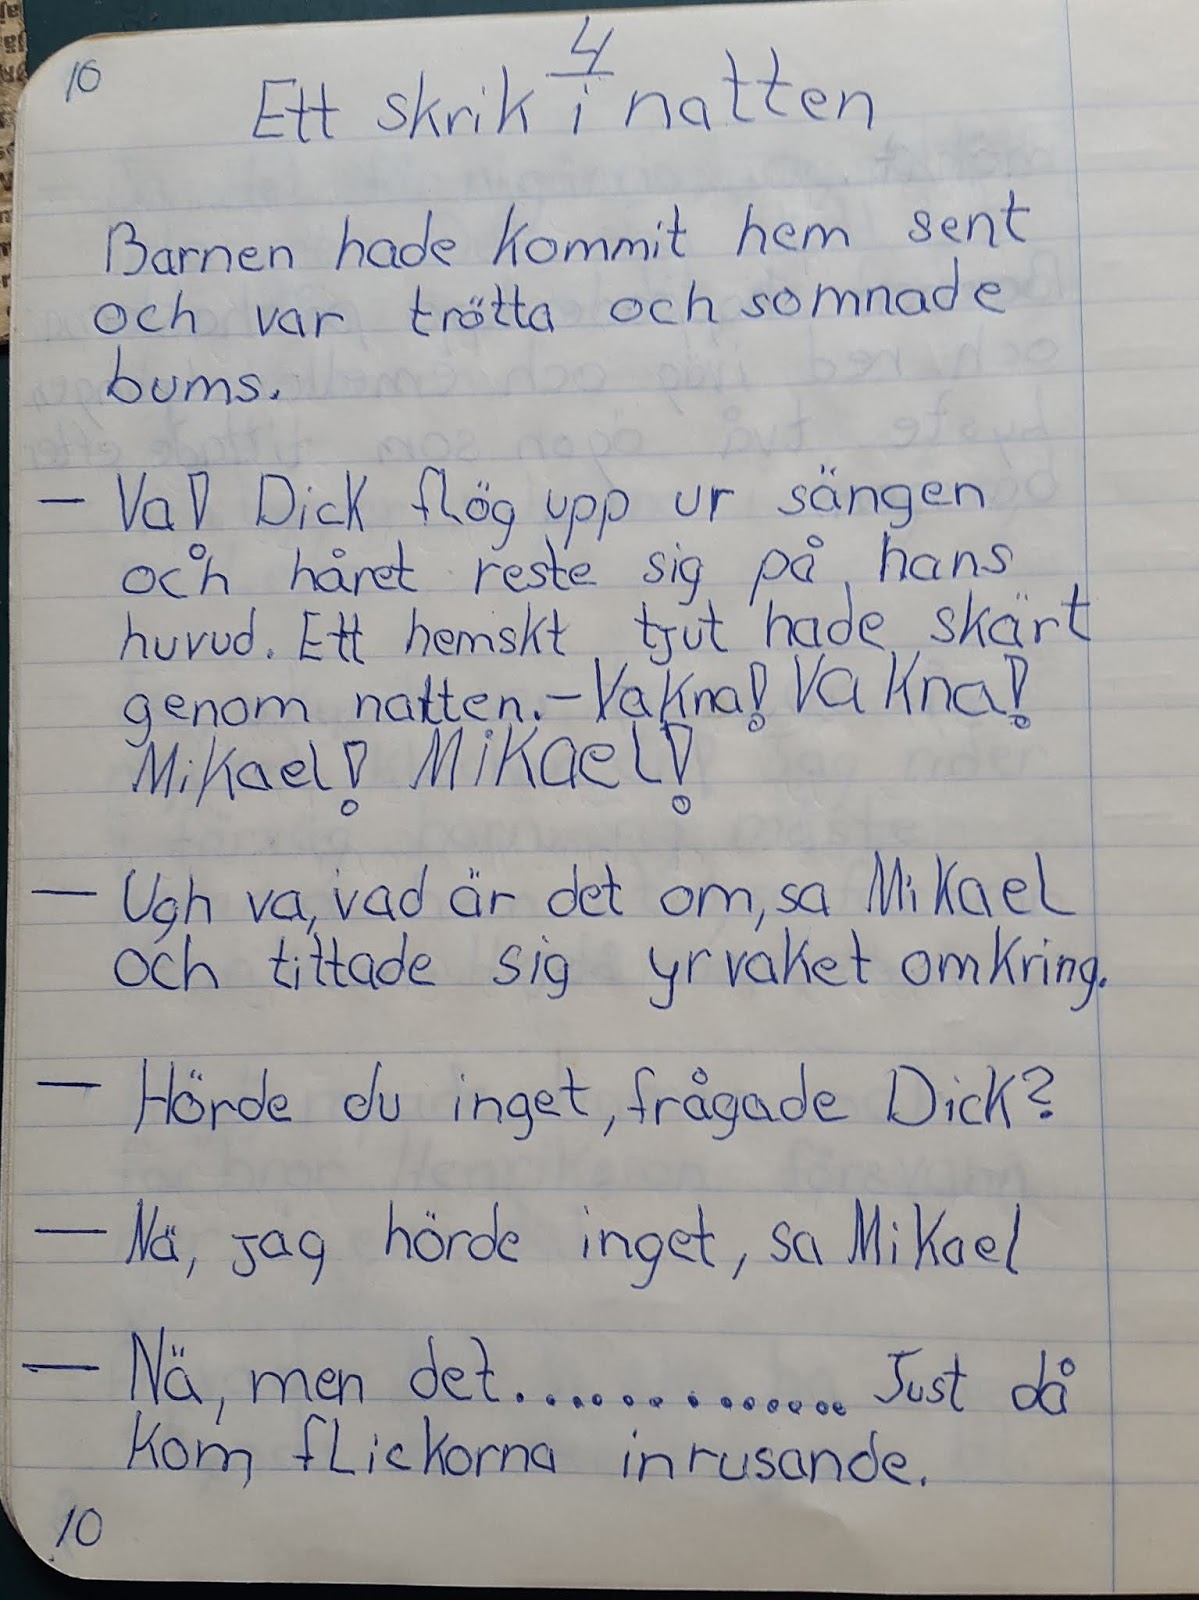 10
4
Ett skrik i natten
Barnen hade kommit hem sent
och var trötta och somnade
bums.
— Va! Dick flög upp ur sängen
och håret reste sig på hans
huvud. Ett hemskt tjut hade skärt
genom natten. – Vakna! Vakna!
Mikael! Mikael!
— Ugh va, vad är det om, sa Mikael
och tittade sig yrvaket omkring.
— Hörde du inget, frågade Dick?
— Nä, jag hörde inget, sa Mikael
— Nä, men det.............. Just då
kom flickorna inrusande.
10